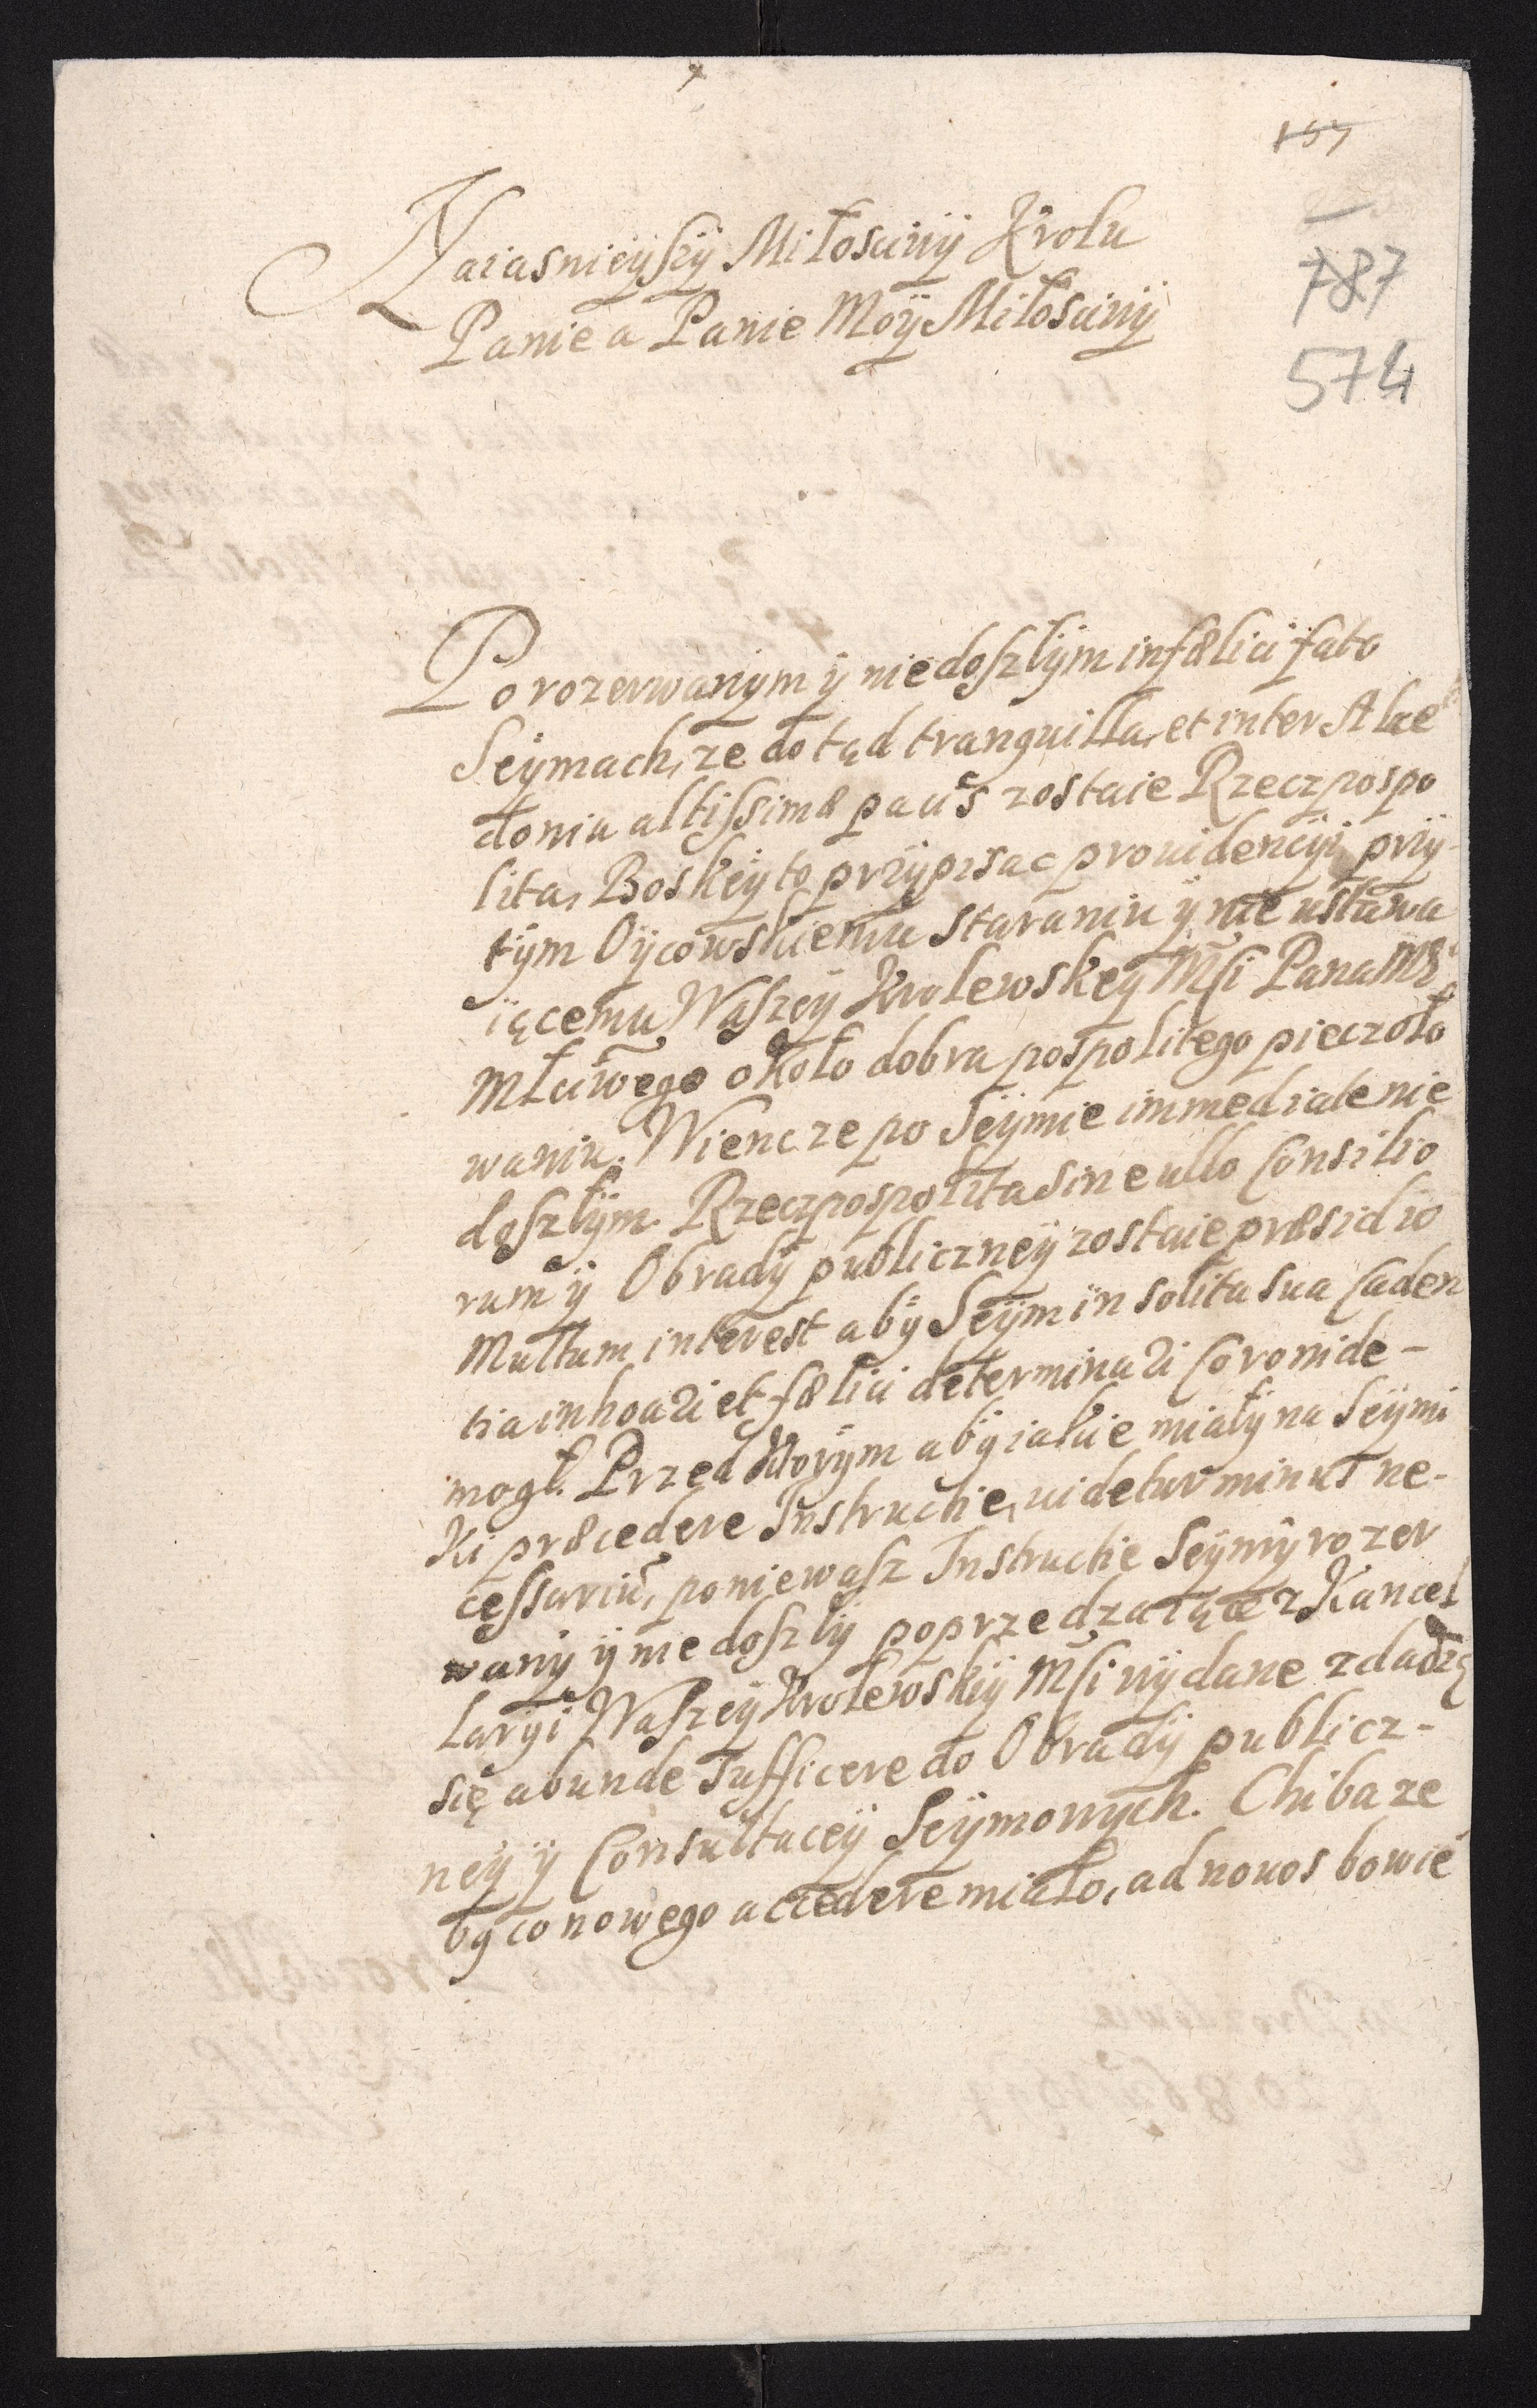 157
787
574
Naiasnieÿszÿ Miłosciwÿ Krolu
Panie a Panie Moÿ Miłosciwÿ
Po rozerwanym ÿ niedoszłÿm infælici fato
Seÿmach, ze dotąd tranquilla, et inter Alce
donia altissimæ pacis zostaie Rzeczpospo
lita, Boskieÿ to przÿpisac prouidencÿi, przÿ
tÿm Oÿcowskiemu staraniu ÿ nie ustawa
iącemu Waszeÿ Krolewskieÿ Msci Pana Mº
Młciwego około dobra pospolitego pieczoło
waniu. Wienc ze po Seÿmie immediate nie
doszłÿm. Rzeczpospolita sine ullo Consilio
rum ÿ Obradÿ publiczneÿ zostaie præsidio
Multum interest abÿ Seÿm in solita sua Caden
tia inhoari et fælici determinari Coronide -
mogł. Przed ktorÿm abÿ iakie miałÿ na Seÿmi
ki præcedere Instructie, uidetur minus ne-
cessariũ, poniewasz Instructie Seÿmÿ rozer
wanÿ ÿ niedoszłÿ poprzedzaiące z Kancel
larÿi Waszeÿ Krolewskiÿ Msci wÿdane zdadzą
się abunde sufficere do Obradÿ publicz-
neÿ ÿ Consultaceÿ Seÿmowÿch. Chiba ze
bÿ co nowego accedere miało, ad nouos bowiẽ